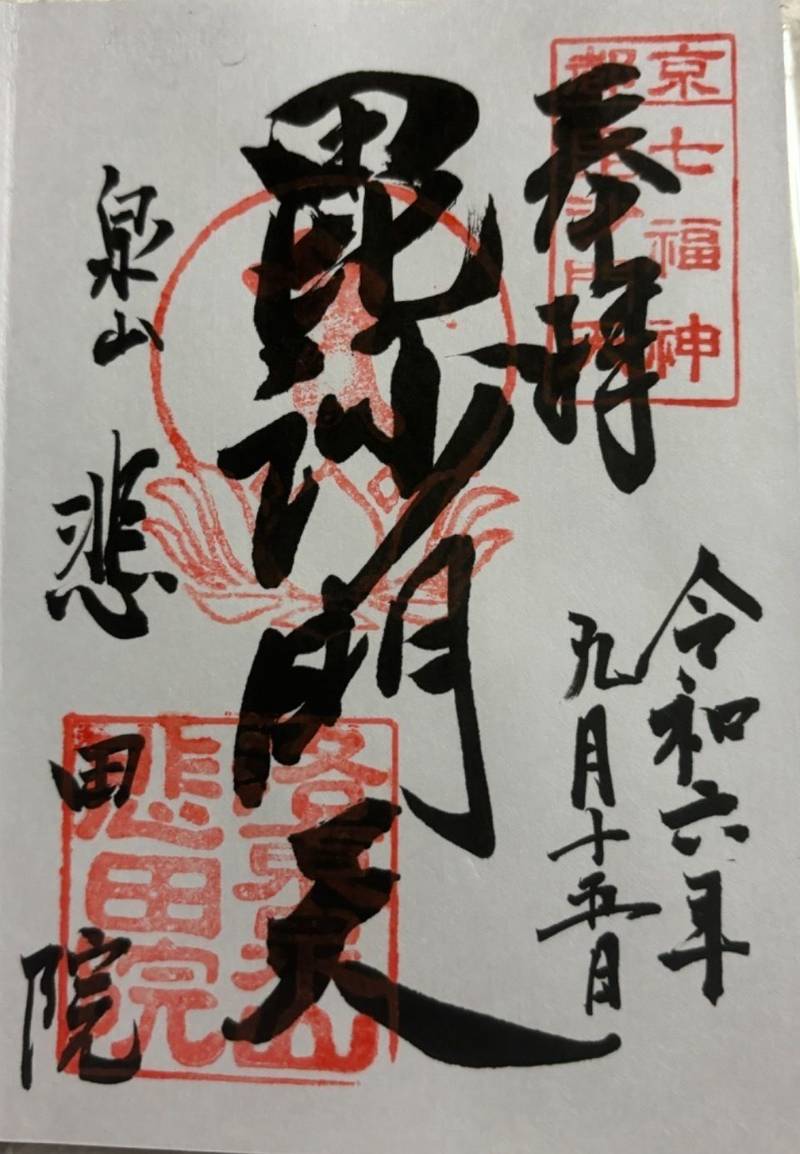 奉拝
令和六年
九月十五日
毘沙門天
泉山 悲田院
京都
七福神
毘沙門天
洛東泉山
悲田院